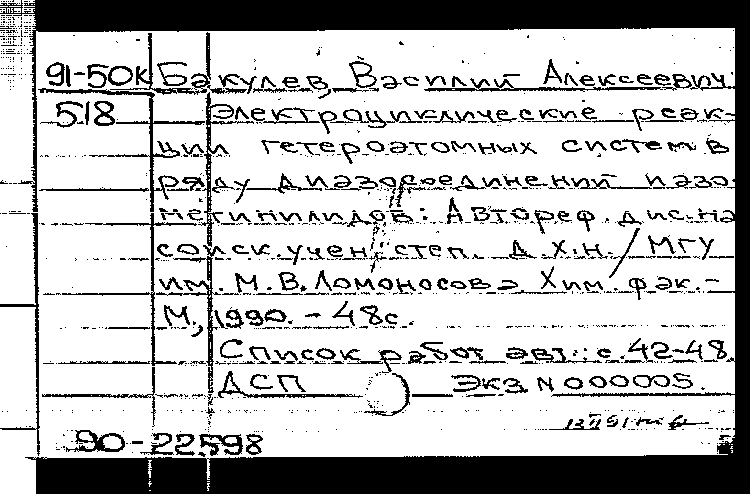 91-50к Бакулев, Василий Алексеевич.
518 Электроциклические реак-
ции гетероатомных систем в
ряду диазосоединений и азо-
метинилидов: Автореф. дис. на
соиск. учен. степ. д.х.н. / МГУ
им. М.В. Ломоносова. Хим. фак. -
М., 1990. - 48с.
Список работ авт.: с. 42-48.
ДСП Экз N 000005.
90-22598